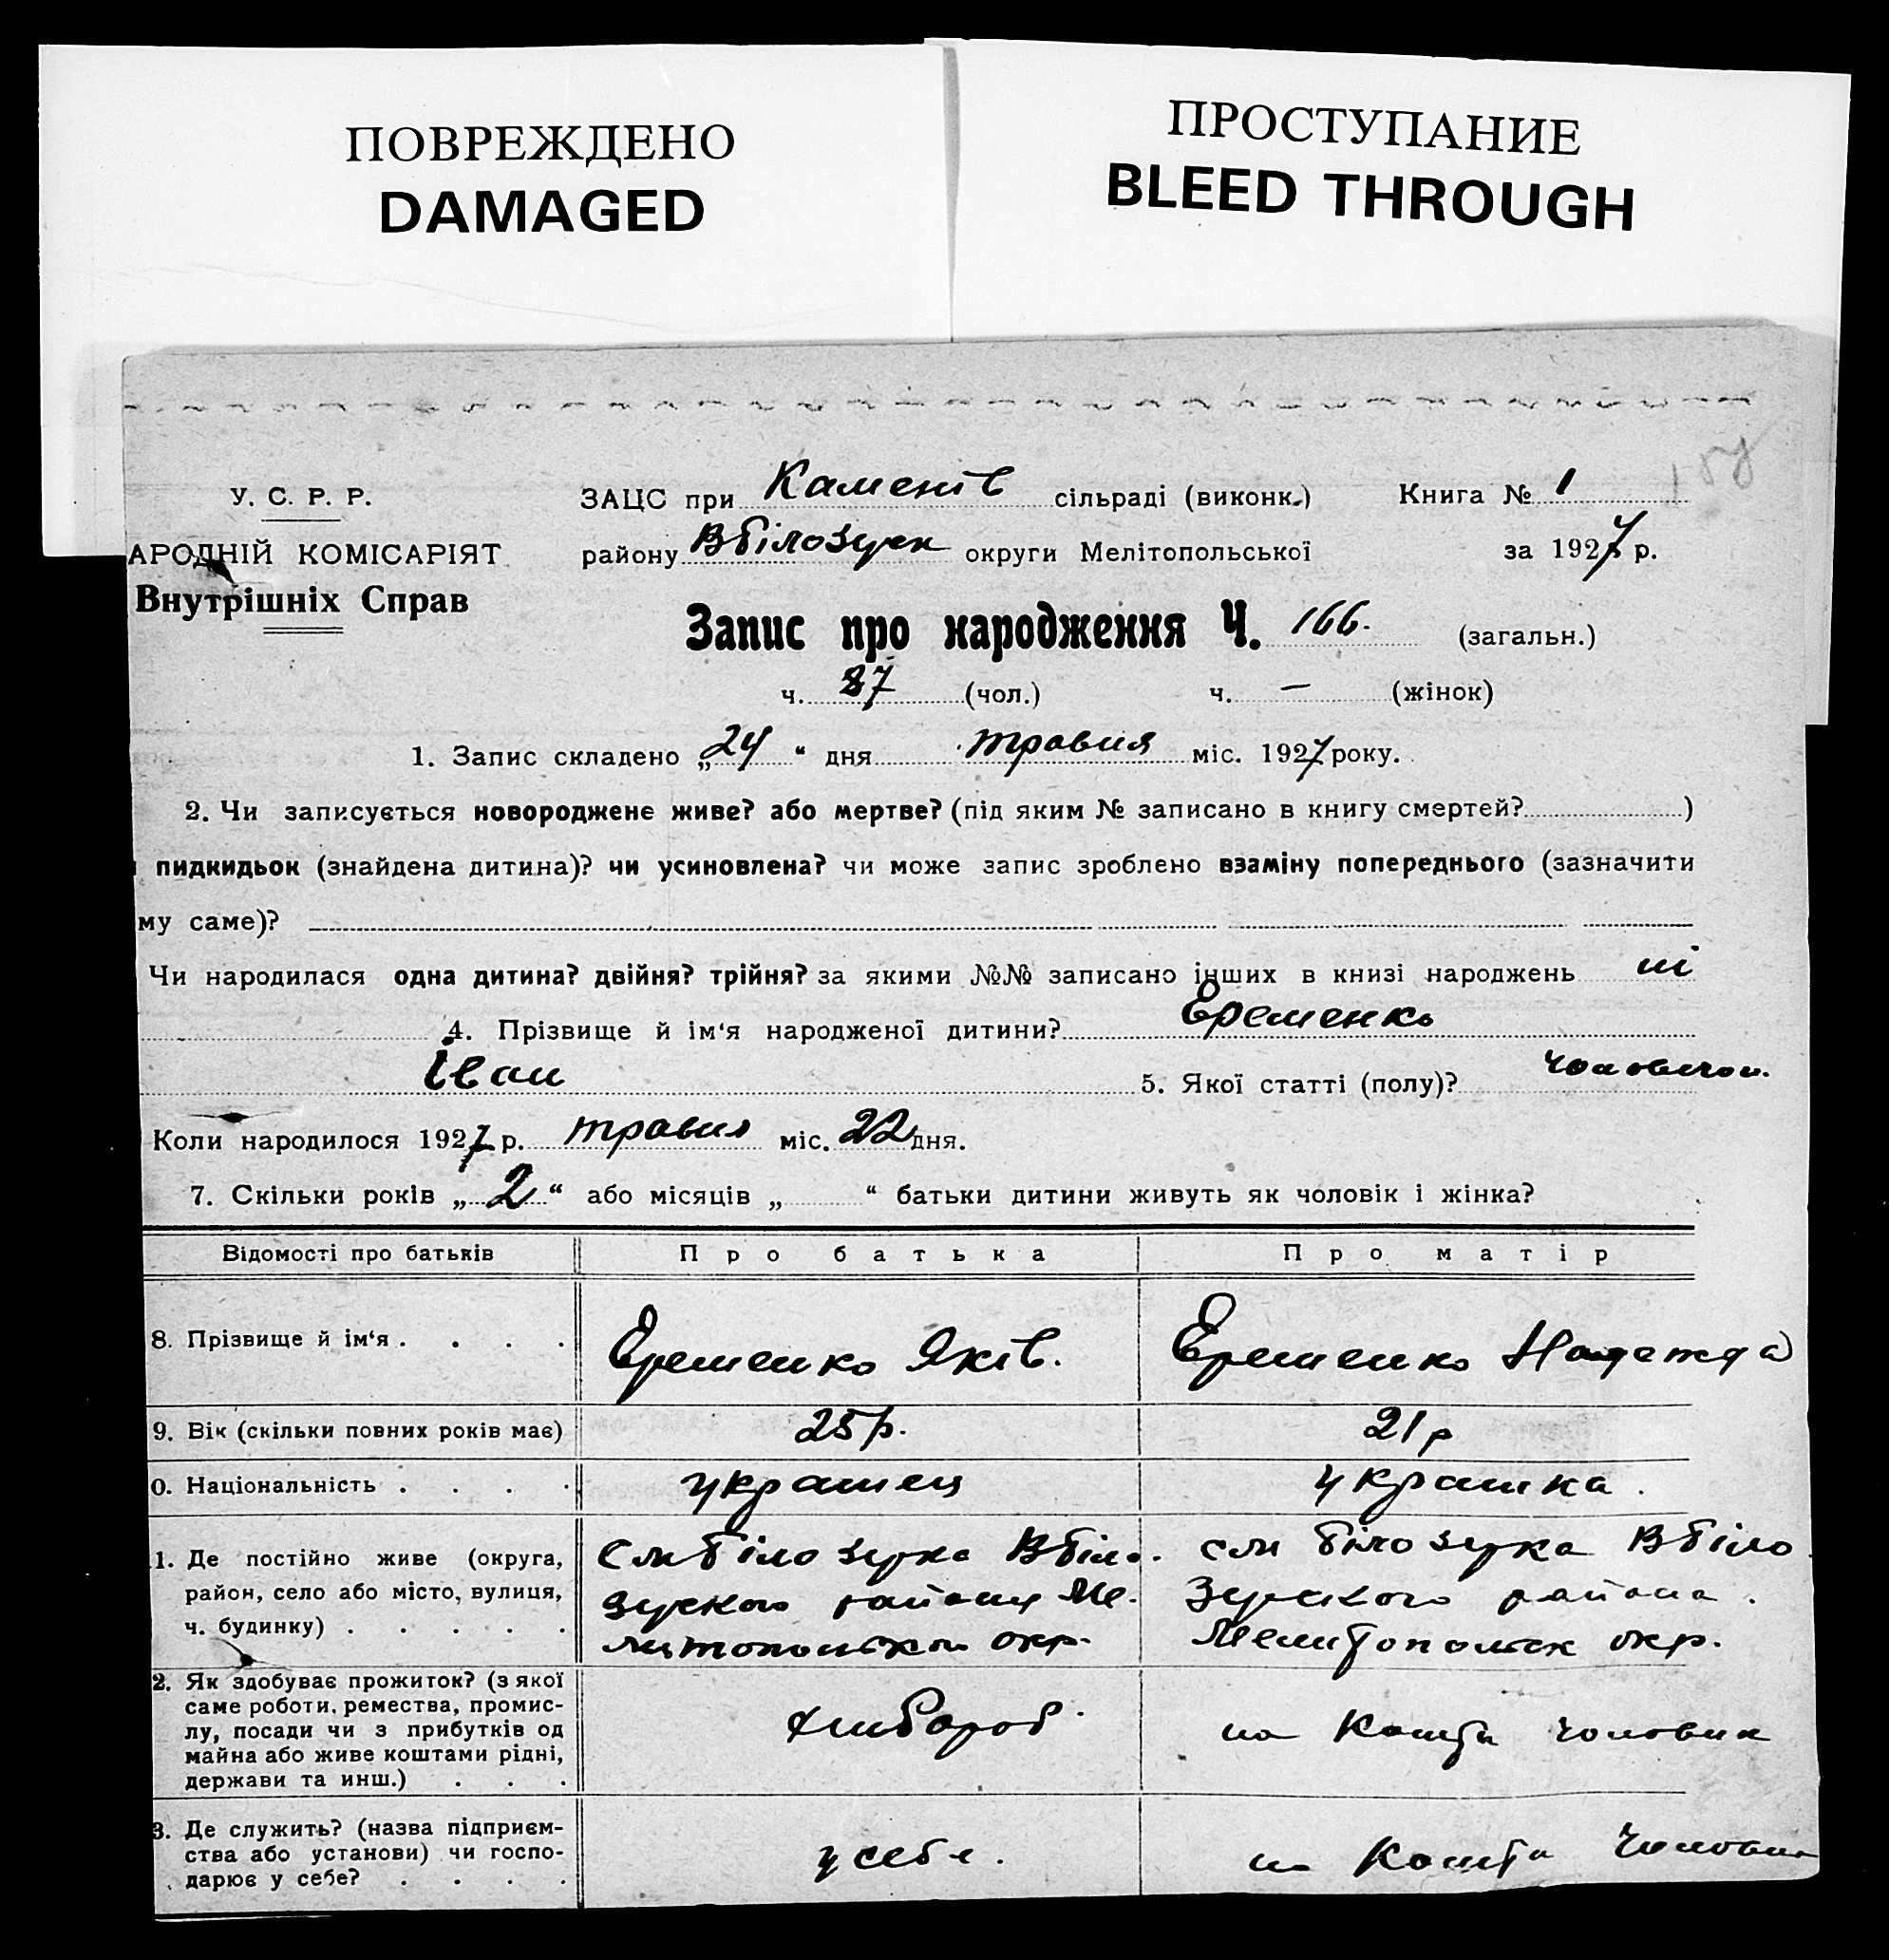 ПОВРЕЖДЕНО
DAMAGED
ПРОСТУПАНИЕ
BLEED THROUGH
У. С. Р. Р.
АРОДНІЙ КОМІСАРІЯТ
Внутрішніх Справ
ЗАЦС при Каменів сільраді (виконк.) Книга № 1
району Вбілозірк округи Мелітопольської за 1927 р.
Запис про народження Ч. 166. (загальн.)
ч. 87 (чол.) ч. — (жінок)
1. Запис складено „24“ дня травня міс. 1927 року.
2. Чи записується новороджене живе? або мертве? (під яким № записано в книгу смертей? )
пидкидьок (знайдена дитина)? чи усиновлена? чи може запис зроблено взаміну попереднього (зазначити
му саме)?
Чи народилася одна дитина? двійня? трійня? за якими №№ записано інших в книзі народжень ні
4. Прізвище й ім'я народженої дитини? Єременко
Іван 5. Якої статті (полу)?
Коли народилося 1927 р. травня міс. 22 дня.
7. Скільки років „2“ або місяців „ “ батьки дитини живуть як чоловік і жінка?
Відомості про батьків Про батька Про матір
8. Прізвище й ім'я . . . . Єременко Яків. Єременко Надежда
9. Вік (скільки повних років має) 25 р. 21 р
0. Національність . . . . українец українка.
1. Де постійно живе (округа,
район, село або місто, вулиця,
ч. будинку) . . . . .
білозірка Вбіло.
района Ме.
литопольскои окр.
білозірка Вбіло
зирского района.
Мелитопольск окр.
2. Як здобуває прожиток? (з якої
саме роботи, ремества, промис-
лу, посади чи з прибутків од
майна або живе коштами рідні,
держави та инш.) . . .
хлібороб.
на кошти чоловик
3. Де служить? (назва підприєм-
ства або установи) чи госпо-
дарює у себе? . . . .
у себе.
на кошти чоловик